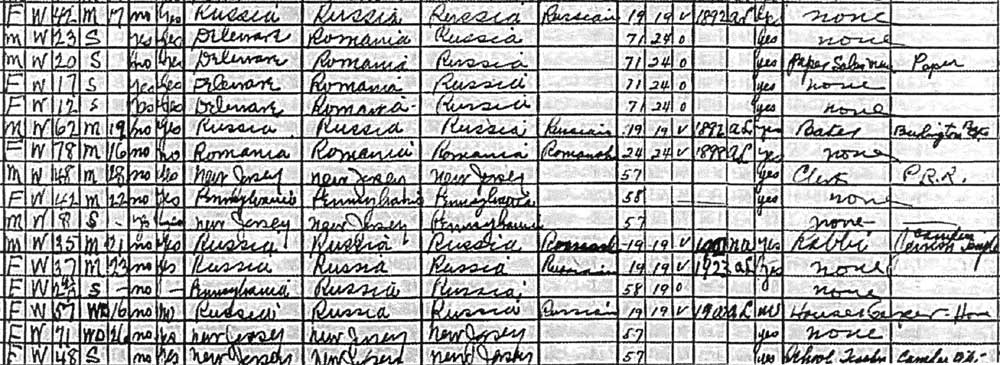 F W 42 M 17 no yes Russia Russia Russia Russian 19 19 V 1892 al yes none
M W 23 S no yes Delaware Romania Russia 71 24 0 yes none
M W 20 S no yes Delaware Romania Russia 71 24 0 yes Paper Salesman Paper
F W 17 S yes yes Delaware Romania Russia 71 24 0 yes none
F W 12 S yes Delaware Romania Russia 71 24 0 none
M W 62 M 19 no yes Russia Russia Russia Russian 19 19 V 1892 al yes Burlington
F W 78 M 16 no no Romania Romania Romania 24 24 V 1898 al yes none
M W 48 M 28 no yes New Jersey New Jersey New Jersey 57 yes Clerk P.R.R.
F W 42 M 22 no yes Pennsylvania Pennsylvania Pennsylvania 58 yes none
M W 8 S New Jersey New Jersey Pennsylvania 57 none
M W 35 M 21 no yes Russia Russia Russia 19 19 V na yes Rabbi Camden
F W 37 M 23 no yes Russia Russia Russia Russian 19 19 V 1923 al yes none
F W S - no - Pennsylvania Russia Russia 58 19 0 none
F W 57 WD 16 no no Russia Russia Russia Russian 19 19 V al no Housekeeper - Home
F W 71 WD 26 no yes New Jersey New Jersey New Jersey 57 yes none
F W 48 S no yes New Jersey New Jersey New Jersey 57 yes School Teacher Camden